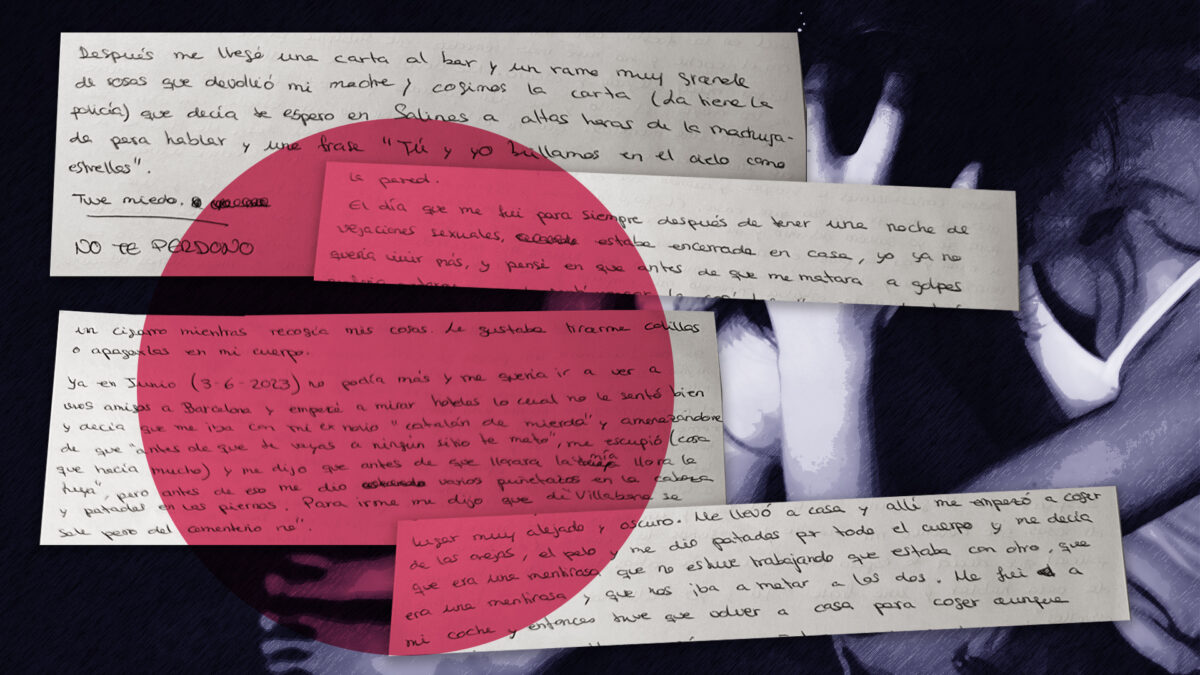 Después me llegó una carta al bar y un ramo muy grande
de rosas que devolvió mi madre y cogimos la carta (la tiene la
policía) que decía te espero en Salinas a altas horas de la madruga-
da para hablar y una frase "Tú y yo brillamos en el cielo como
estrellas".
Tuve miedo.
NO TE PERDONO
la pared.
El día que me fui para siempre después de tener una noche de
vejaciones sexuales, estaba encerrada en casa, yo ya no
quería vivir más, y pensé en que antes de que me matara a golpes
un cigarro mientras recogía mis cosas. Le gustaba tirarme colillas
o apagarlas en mi cuerpo.
Ya en Junio (3-6-2023) no podía más y me quería ir a ver a
unos amigos a Barcelona y empecé a mirar hoteles lo cual no le sentó bien
y decía que me iba con mi ex novio "catalán de mierda" y amenazándome
de que "antes de que te vayas a ningún sitio te mato", me escupió (cosa
que hacía mucho) y me dijo que antes de que llorara la mía llora la
tuya", pero antes de eso me dio varios puñetazos en la cabeza
y patadas en las piernas. Para irme me dijo que de "Villabona se
sale pero del cementerio no".
lugar muy alejado y oscuro. Me llevó a casa y allí me empezó a coger
de las orejas, el pelo y me dio patadas por todo el cuerpo y me decía
que era una mentirosa que no estuve trabajando que estaba con otro, que
era una mentirosa y que nos iba a matar a los dos. Me fui a
mi coche y entonces tuve que volver a casa para coger aunque